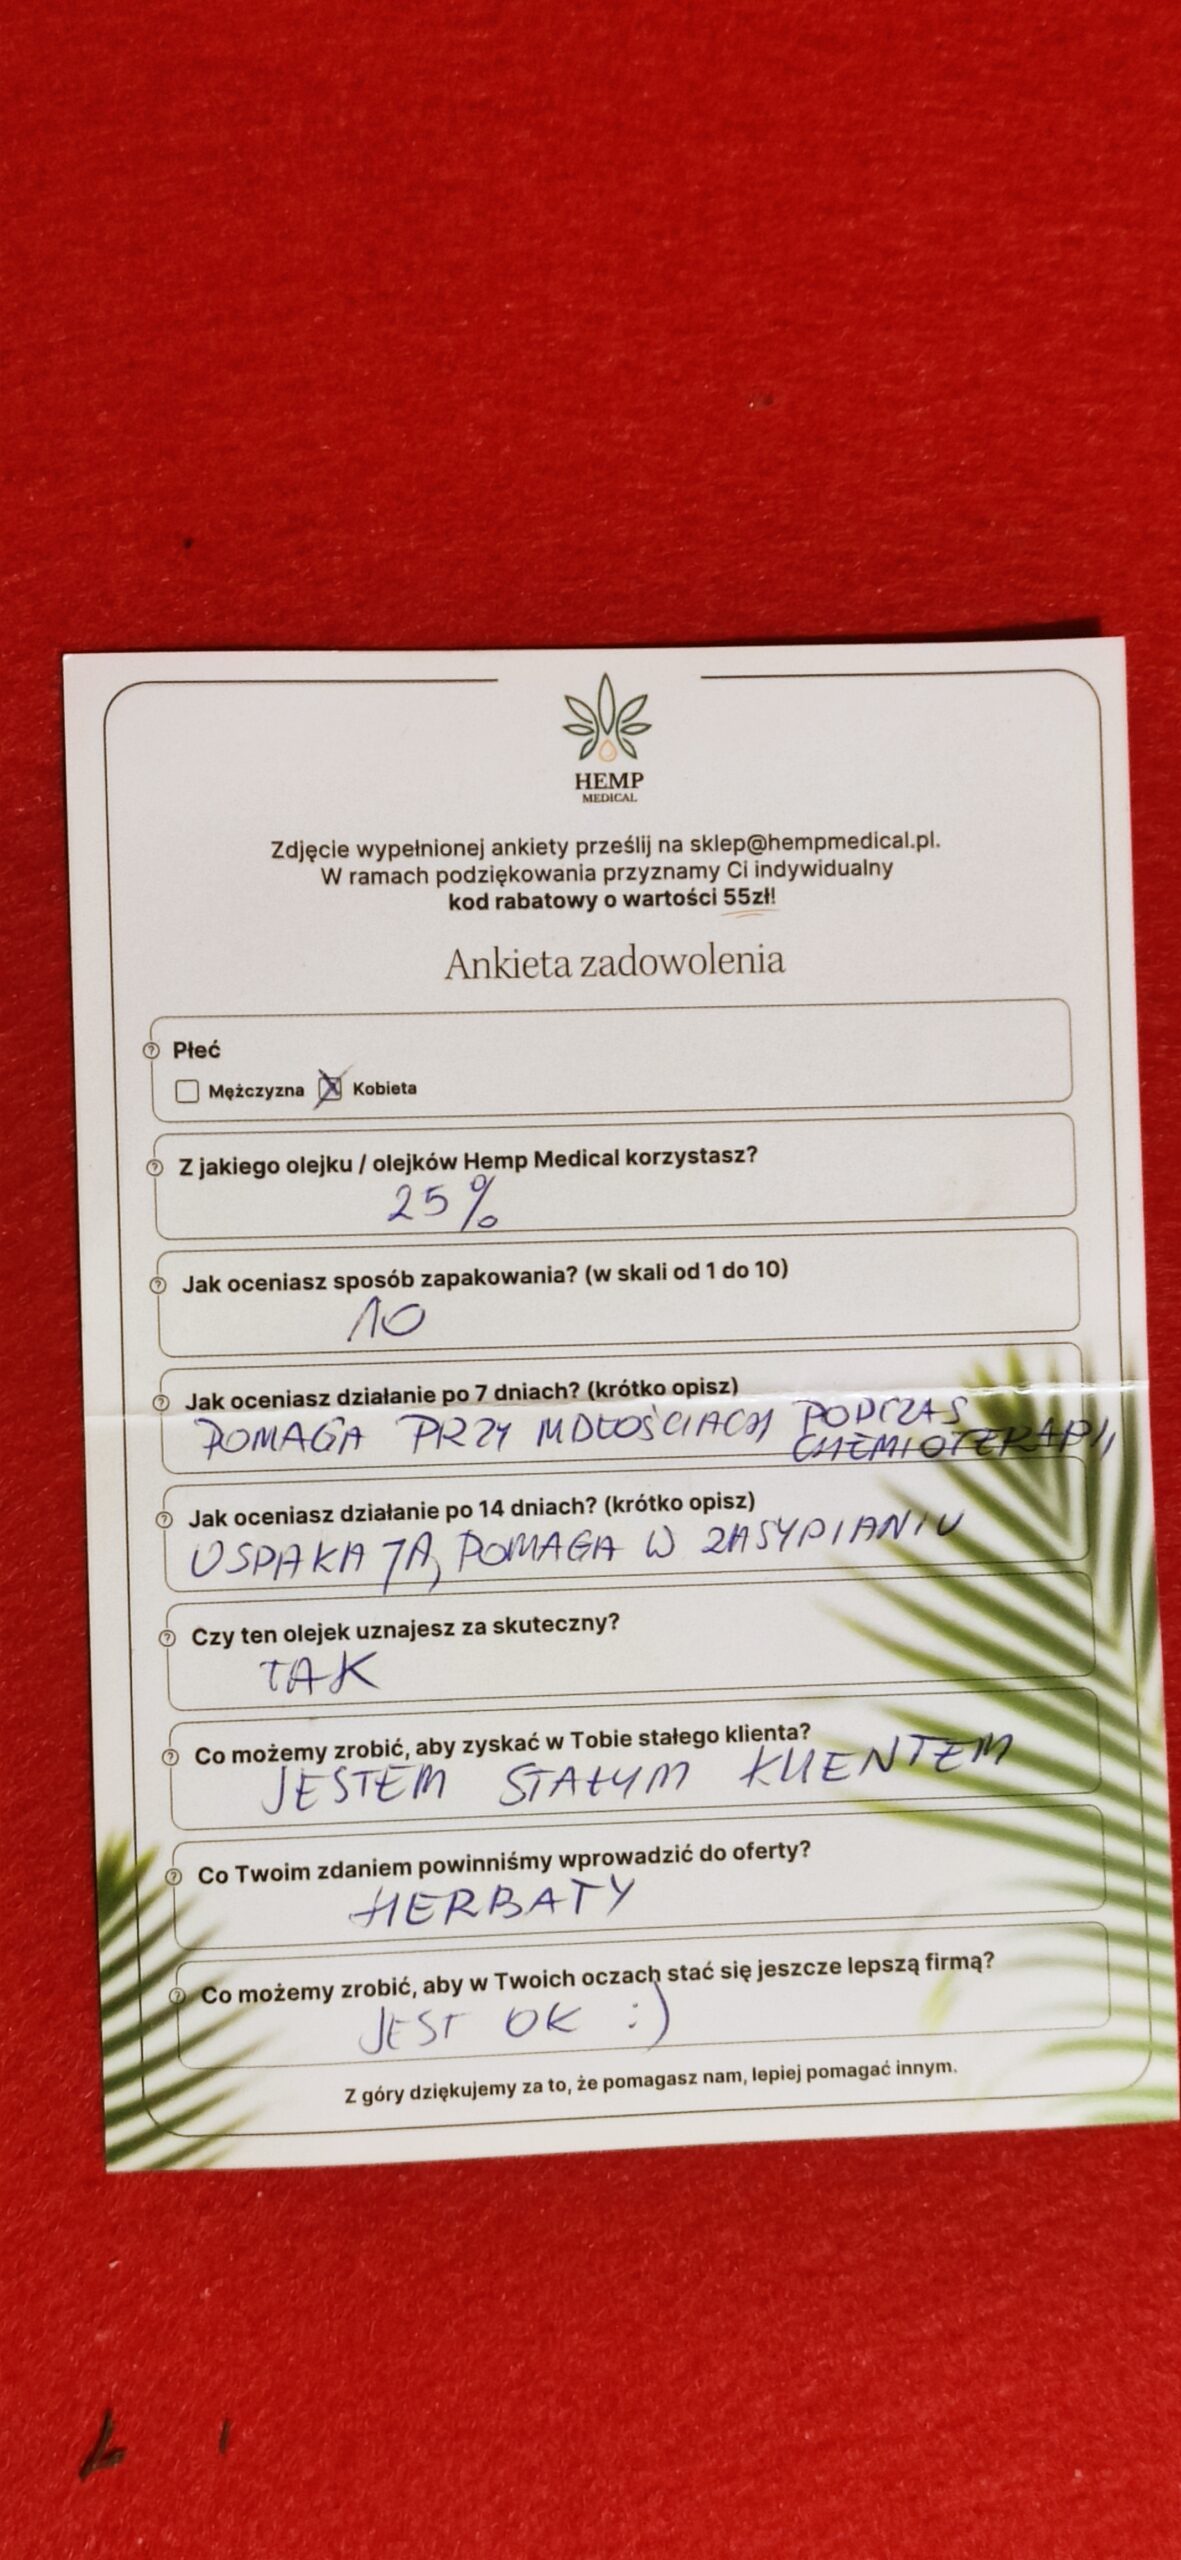 HEMP
MEDICAL
Zdjęcie wypełnionej ankiety prześlij na sklep@hempmedical.pl.
W ramach podziękowania przyznamy Ci indywidualny
kod rabatowy o wartości 55zł!
Ankieta zadowolenia
Płeć
Mężczyzna Kobieta
Z jakiego olejku / olejków Hemp Medical korzystasz?
25%
Jak oceniasz sposób zapakowania? (w skali od 1 do 10)
10
Jak oceniasz działanie po 7 dniach? (krótko opisz)
POMAGA PRZY MDŁOŚCIACH PODCZAS
CHEMIOTERAPII
Jak oceniasz działanie po 14 dniach? (krótko opisz)
USPAKAJA, POMAGA W ZASYPIANIU
Czy ten olejek uznajesz za skuteczny?
TAK
Co możemy zrobić, aby zyskać w Tobie stałego klienta?
JESTEM STAŁYM KLIENTEM
Co Twoim zdaniem powinniśmy wprowadzić do oferty?
HERBATY
Co możemy zrobić, aby w Twoich oczach stać się jeszcze lepszą firmą?
JEST OK :)
Z góry dziękujemy za to, że pomagasz nam, lepiej pomagać innym.